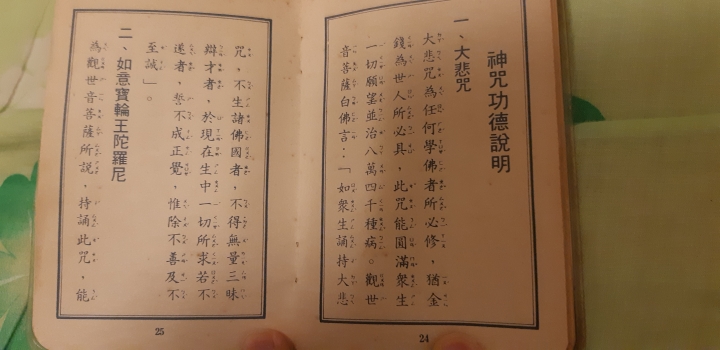 神咒功德說明
一、大悲咒
大悲咒為任何學佛者所必修，猶金
錢為世人所必具，此咒能圓滿眾生
一切願望並治八萬四千種病。觀世
音菩薩白佛言：「如眾生誦持大悲
24
咒，不生諸佛國者，不得無量三昧
辯才者，於現在生中一切所求若不
遂者，誓不成正覺，惟除不善及不
至誠」。
二、如意寶輪王陀羅尼
為觀世音菩薩所說，持誦此咒，能
25